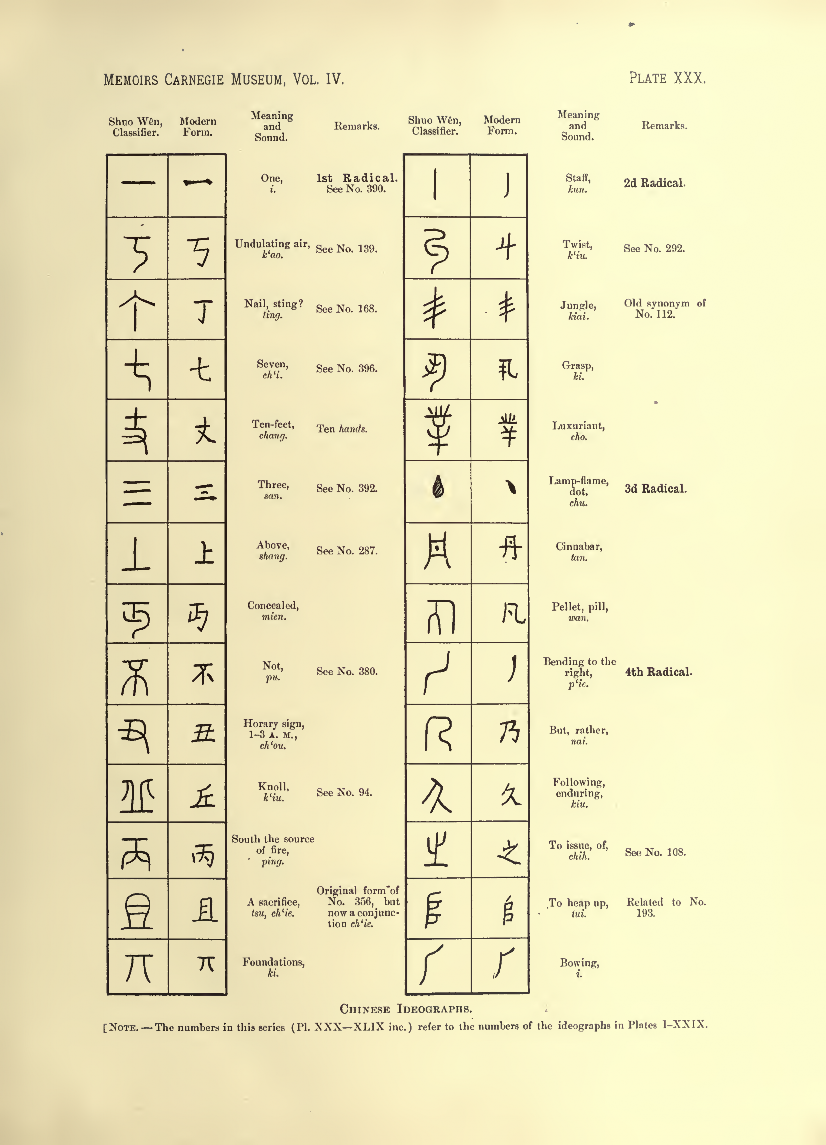 MEMOIRS CARNEGIE MUSEUM, VOL. IV. PLATE XXX.
Shuo Wên, Classifier. Modern Form. Meaning and Sound. Remarks.
一 One, i. 1st Radical. See No. 390.
丂 Undulating air, k‘ao. See No. 139.
丁 Nail, sting? ting. See No. 168.
七 Seven, ch‘i. See No. 396.
丈 Ten-feet, chang. Ten hands.
三 Three, san. See No. 392.
上 Above, shang. See No. 287.
丏 Concealed, mien.
不 Not, pu. See No. 380.
丑 Horary sign, 1–3 A. M., ch‘ou.
丘 Knoll, k‘iu. See No. 94.
丙 South the source of fire, ping.
且 A sacrifice, tsu, ch‘ie. Original form of No. 356, but now a conjunction ch‘ie.
丌 Foundations, ki.
Shuo Wên, Classifier. Modern Form. Meaning and Sound. Remarks.
Staff, kun. 2d Radical.
丩 Twist, k‘iu. See No. 292.
丯 Jungle, kiai. Old synonym of No. 112.
丮 Grasp, ki.
丵 Luxuriant, cho.
丶 Lamp-flame, dot, chu. 3d Radical.
丹 Cinnabar, tan.
Pellet, pill, wan.
丿 Bending to the right, p‘ie. 4th Radical.
乃 But, rather, nai.
久 Following, enduring, kiu.
之 To issue, of, chih. See No. 108.
To heap up, tui. Related to No. 193.
Bowing, i.
CHINESE IDEOGRAPHS.
[NOTE.—The numbers in this series (Pl. XXX—XLIX inc.) refer to the numbers of the ideographs in Plates I–XXIX.